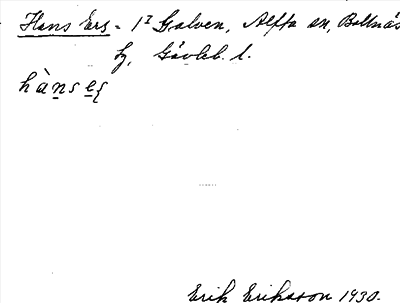 Hans Ers - 1² Galven, Alfta sn, Bollnäs
tg, Gävleb. l.
hà̱nse̱ʂ
Erik Eriksson 1930.